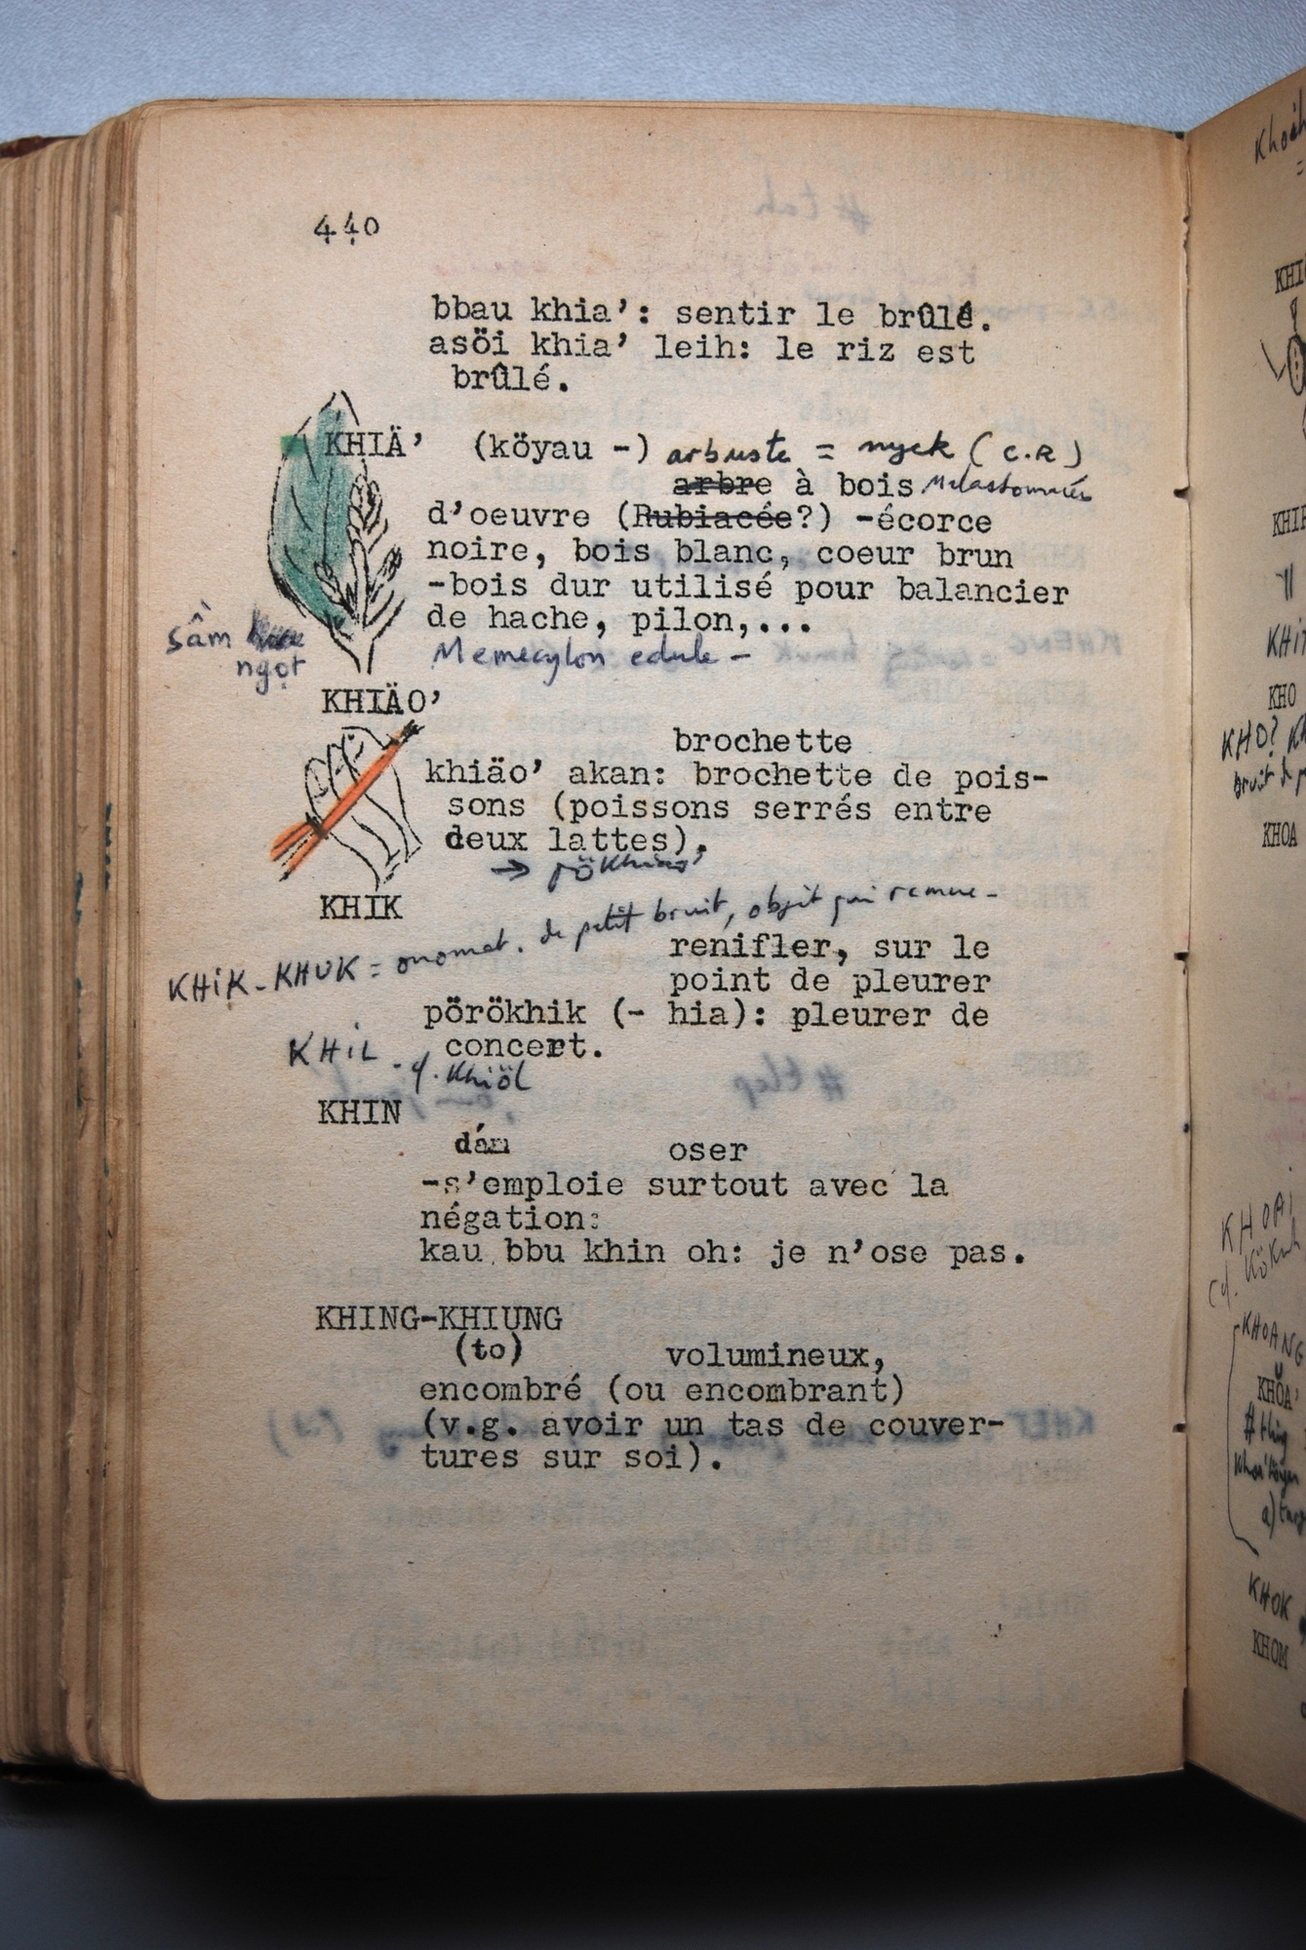 440
bbau khia’: sentir le brûlé.
asöi khia’ leih: le riz est
brûlé.
KHIÄ’ (köyau -) arbuste = nyek (C.R)
arbre à bois
d’oeuvre (Rubiacée?) -écorce
noire, bois blanc, coeur brun
-bois dur utilisé pour balancier
de hache, pilon,...
sầm
ngọt
Memecylon edule -
KHIÄO’
brochette
khiäo’ akan: brochette de pois-
sons (poissons serrés entre
deux lattes).
→ pökhiäo’
KHIK
KHIK-KHUK = onomat. de petit bruit, objet qui remue -
renifler, sur le
point de pleurer
pörökhik (- hia): pleurer de
concert.
KHIL - cf. khiöl
KHIN
dám oser
-s’emploie surtout avec la
négation:
kau bbu khin oh: je n’ose pas.
KHING-KHIUNG
(to) volumineux,
encombré (ou encombrant)
(v.g. avoir un tas de couver-
tures sur soi).
KHO
KHO?
KHOA
KHOAI
KHOANG
KHŎA’
KHOK
KHOM